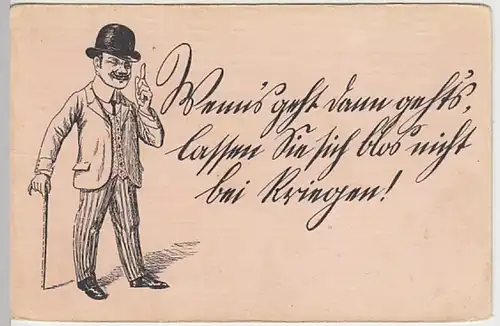 Wenn's geht dann geht's,
lassen Sie sich blos nicht
bei Kriegen!